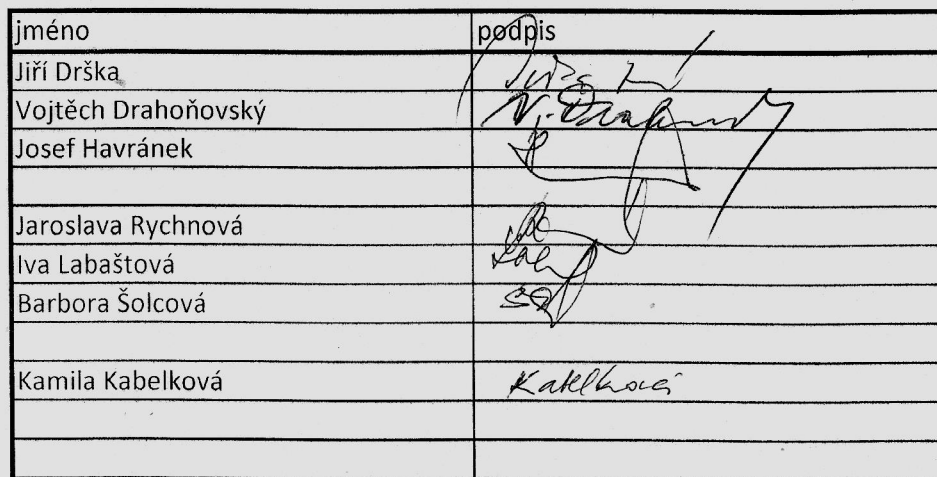 jméno podpis
Jiří Drška
Vojtěch Drahoňovský
Josef Havránek
Jaroslava Rychnová
Iva Labaštová
Barbora Šolcová
Kamila Kabelková Kabelková